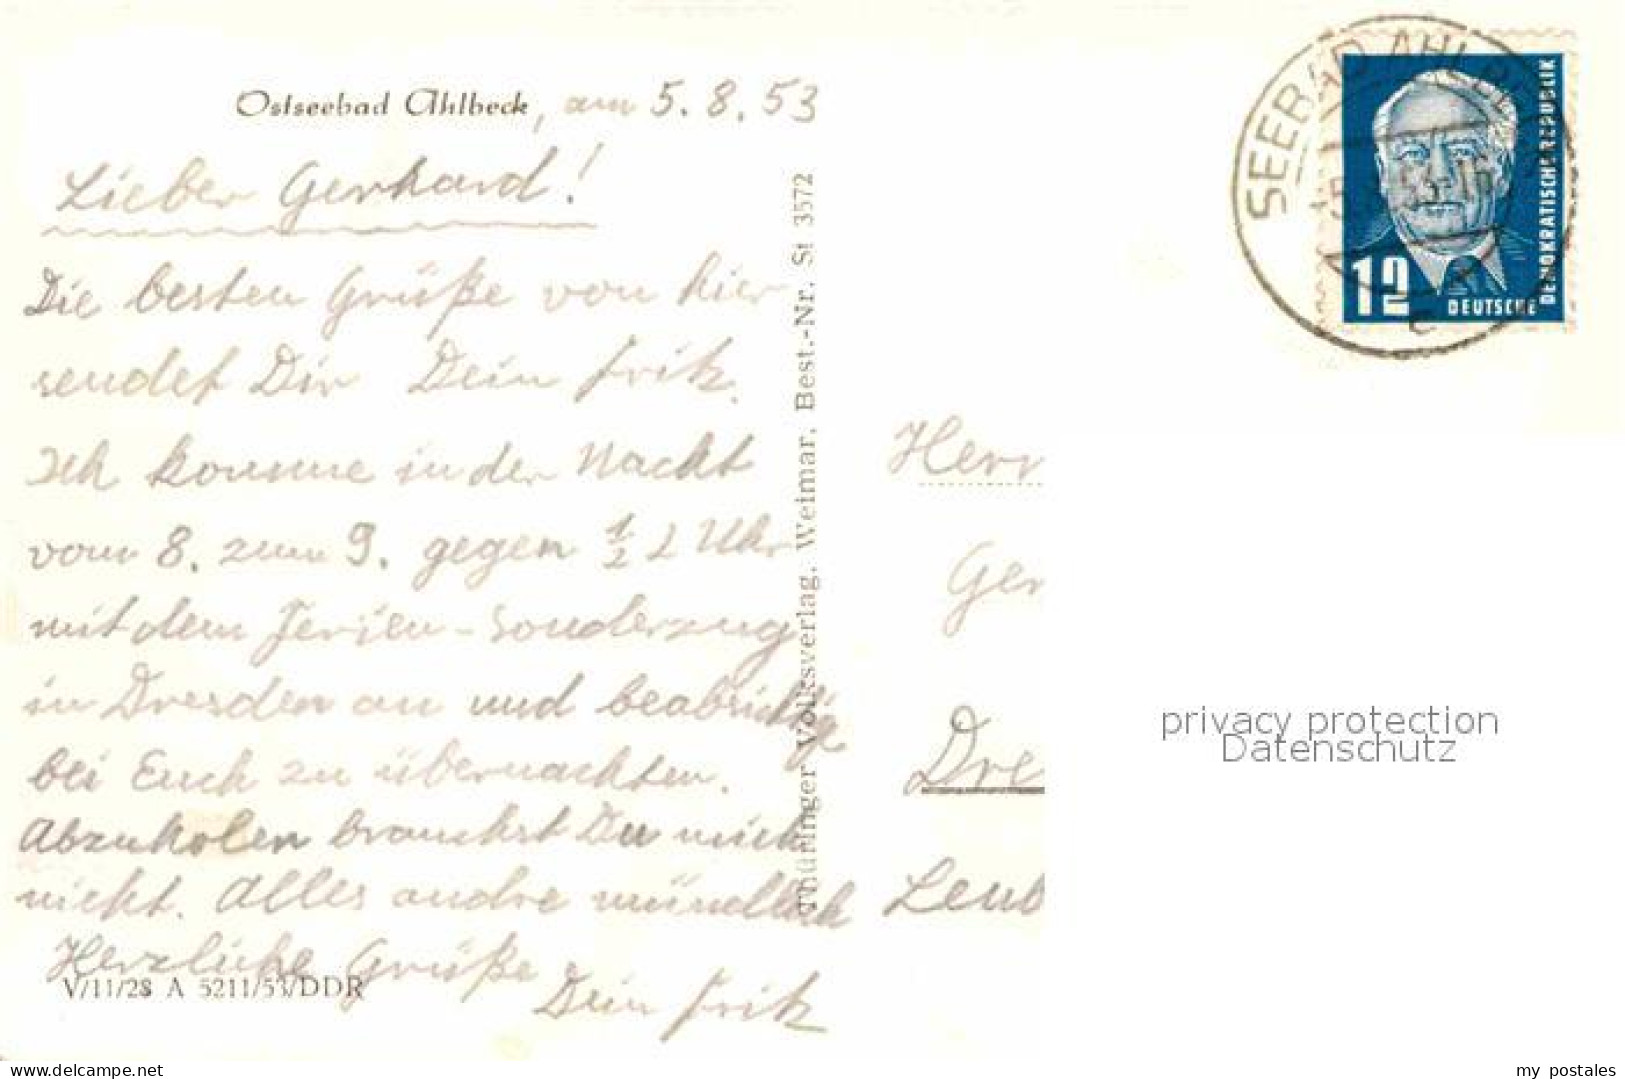 Ostseebad Ahlbeck, am 5.8.53
Lieber Gerhard!
Die besten Grüße von hier
sendet Dir Dein Fritz.
Ich komme in der Nacht
vom 8. zum 9. gegen 1/2 2 Uhr
mit dem Ferien-Sonderzug
in Dresden an und beabsichtige
bei Euch zu übernachten.
Abzuholen brauchst Du mich
nicht. Alles andre mündlich
Herzliche Grüße
Dein Fritz
V/11/28 A 5211/53/DDR
Thüringer Volksverlag, Weimar, Best.-Nr. St 3572
SEEBAD AHLBECK
12
DEUTSCHE
DEMOKRATISCHE REPUBLIK
Herr
Ger
Dre
Leub
privacy protection
Datenschutz
www.delcampe.net
my_postales